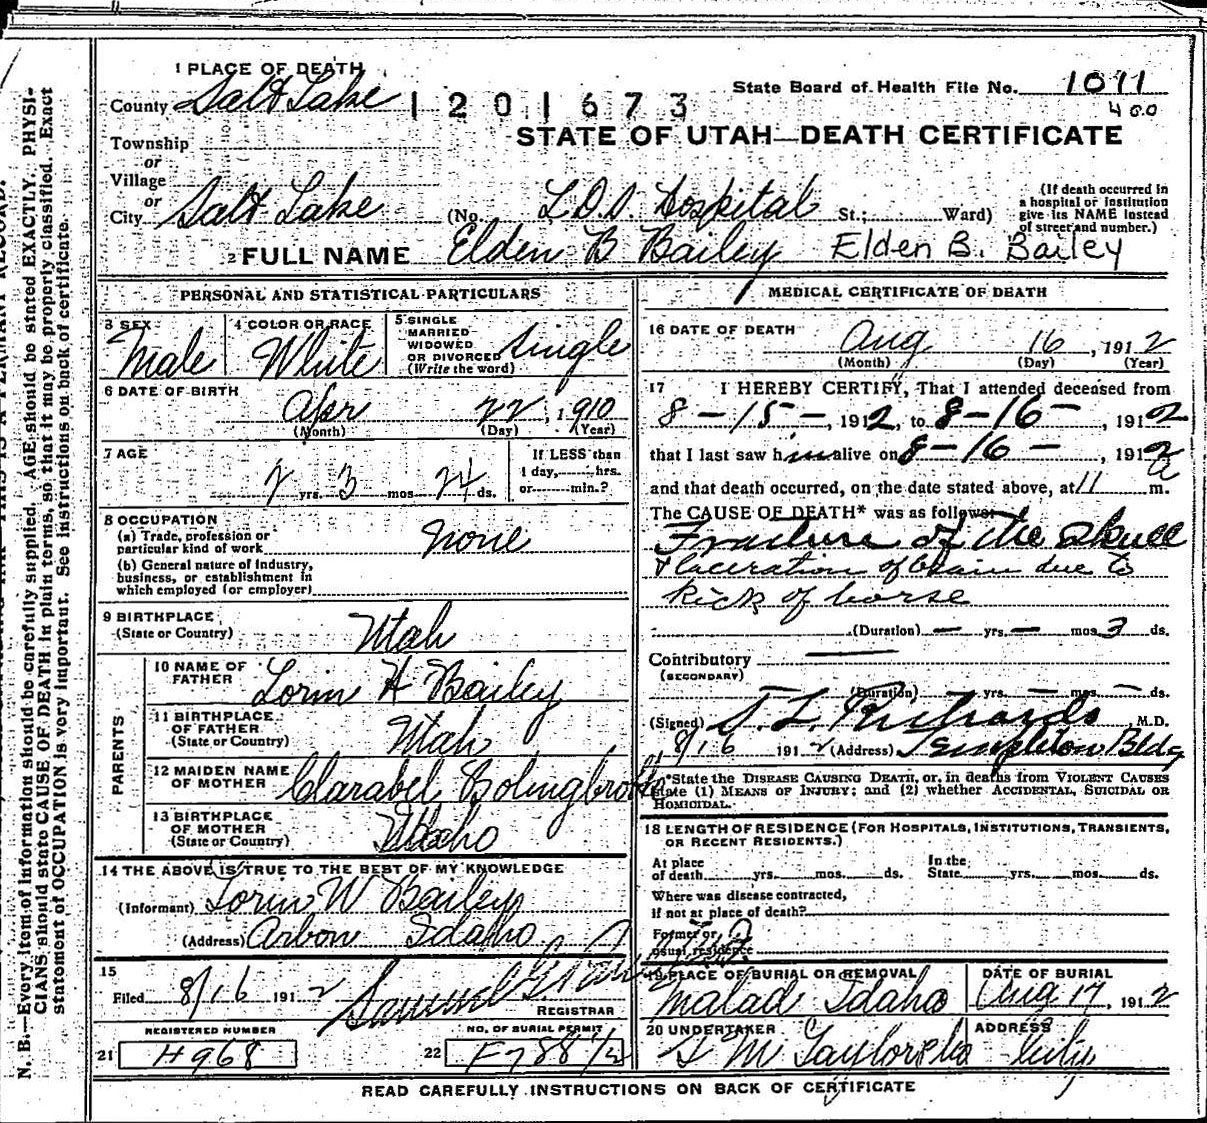 1 PLACE OF DEATH
County Salt Lake
1201673
State Board of Health File No. 1011
400
STATE OF UTAH—DEATH CERTIFICATE
Township
or
Village
or
City Salt Lake (No. L.D.S. Hospital St.; Ward)
(If death occurred in
a hospital or institution
give its NAME instead
of street and number.)
2 FULL NAME Elden B Bailey Elden B. Bailey
PERSONAL AND STATISTICAL PARTICULARS
3 SEX Male
4 COLOR OR RACE White
5 SINGLE
MARRIED
WIDOWED
OR DIVORCED
(Write the word) Single
6 DATE OF BIRTH
Apr 22, 1910
(Month) (Day) (Year)
7 AGE
2 yrs. 3 mos. 24 ds.
If LESS than
1 day, hrs.
or min.?
8 OCCUPATION
(a) Trade, profession or
particular kind of work None
(b) General nature of Industry,
business, or establishment in
which employed (or employer)
9 BIRTHPLACE
(State or Country) Utah
PARENTS
10 NAME OF
FATHER Lorin H Bailey
11 BIRTHPLACE
OF FATHER
(State or Country) Utah
12 MAIDEN NAME
OF MOTHER Clarabel
13 BIRTHPLACE
OF MOTHER
(State or Country) Idaho
14 THE ABOVE IS TRUE TO THE BEST OF MY KNOWLEDGE
(Informant) Lorin W Bailey
(Address) Arbon Idaho
15
Filed 8/16 1912 Samuel G.
REGISTRAR
REGISTERED NUMBER
21 H968
NO. OF BURIAL PERMIT
22 F788 1/2
MEDICAL CERTIFICATE OF DEATH
16 DATE OF DEATH
Aug 16, 1912
(Month) (Day) (Year)
17 I HEREBY CERTIFY, That I attended deceased from
8-15-, 1912, to 8-16-, 1912
that I last saw him alive on 8-16-, 1912
and that death occurred, on the date stated above, at 11 a m.
The CAUSE OF DEATH* was as follows:
Fracture of the Skull
& laceration of brain due to
Kick of horse
(Duration) — yrs. — mos. 3 ds.
Contributory
(SECONDARY)
(Duration) — yrs. — mos. — ds.
(Signed) Richards, M.D.
8/16 1912 (Address) Templeton Bldg
*State the DISEASE CAUSING DEATH, or, in deaths from VIOLENT CAUSES
state (1) MEANS OF INJURY; and (2) whether ACCIDENTAL, SUICIDAL OR
HOMICIDAL.
18 LENGTH OF RESIDENCE (FOR HOSPITALS, INSTITUTIONS, TRANSIENTS,
OR RECENT RESIDENTS.)
At place
of death yrs. mos. ds.
In the
State yrs. mos. ds.
Where was disease contracted,
if not at place of death?
Former or
usual residence
19 PLACE OF BURIAL OR REMOVAL
Malad Idaho
DATE OF BURIAL
Aug 17, 1912
20 UNDERTAKER
S M Taylor
ADDRESS
City
READ CAREFULLY INSTRUCTIONS ON BACK OF CERTIFICATE
N. B.—Every item of information should be carefully supplied. AGE should be stated EXACTLY. PHYSI-
CIANS should state CAUSE OF DEATH in plain terms, so that it may be properly classified. Exact
statement of OCCUPATION is very important. See instructions on back of certificate.